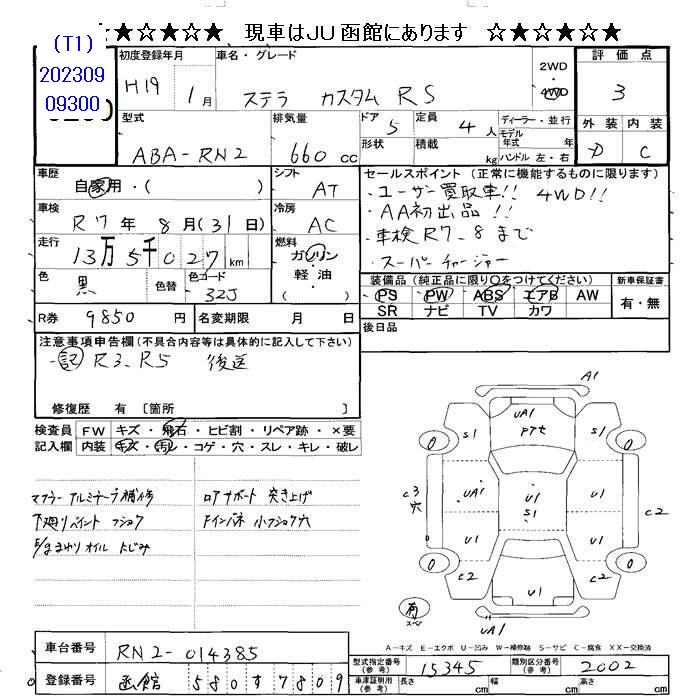 ★☆★☆★☆ 現車はJU函館にあります ☆★☆★☆★
(T1)
202309
09300
初度登録年月 車名・グレード 2WD 評価点
H19 1月 ステラ カスタム RS 4WD 3
型式 排気量 ドア 定員 ディーラー・並行 外装 内装
ABA-RN2 660cc 5 4人 モデル年式 年 D C
形状 積載 kg ハンドル 左・右
車歴 シフト セールスポイント (正常に機能するものに限ります)
自家用・( ) AT ・ユーザー買取車!! 4WD!!
車検 冷房 ・AA初出品!!
R7年 8月(31日) AC ・車検R7.8まで
走行 燃料 ・スーパーチャージャー
13万5千027km ガソリン
軽油
( )
色 黒 色替 色コード 32J
装備品 (純正品に限り○をつけてください) 新車保証書
PS PW ABS エアB AW 有・無
SR ナビ TV カワ
R券 9850円 名変期限 月 日 後日品
注意事項申告欄(不具合内容等は具体的に記入して下さい)
・記 R3、R5 後送
修復歴 有 [箇所 ]
検査員 FW キズ・飛石・ヒビ割・リペア跡・×要
記入欄 内装 キズ・汚レ・コゲ・穴・スレ・キレ・破レ
マフラー アルミテープ補修 ロアサポート 突き上げ
下廻りペイント フショク インパネ 小フショク穴
E/gまわりオイル にじみ
A1
UA1
P7t
S1 S1
0 0
C3 穴 UA1 U1 S1 U1 C2
U1 U1
0 0
C2 U1 C2
有 スペ
UA1
A-キズ E-エクボ U-凹み W-補修跡 S-サビ C-腐食 XX-交換済
車台番号 RN2-014385
登録番号 函館 580 す 7809
型式指定番号(参考) 15345 類別区分番号(参考) 2002
車庫証明用(参考) 長さ cm 幅 cm 高さ cm